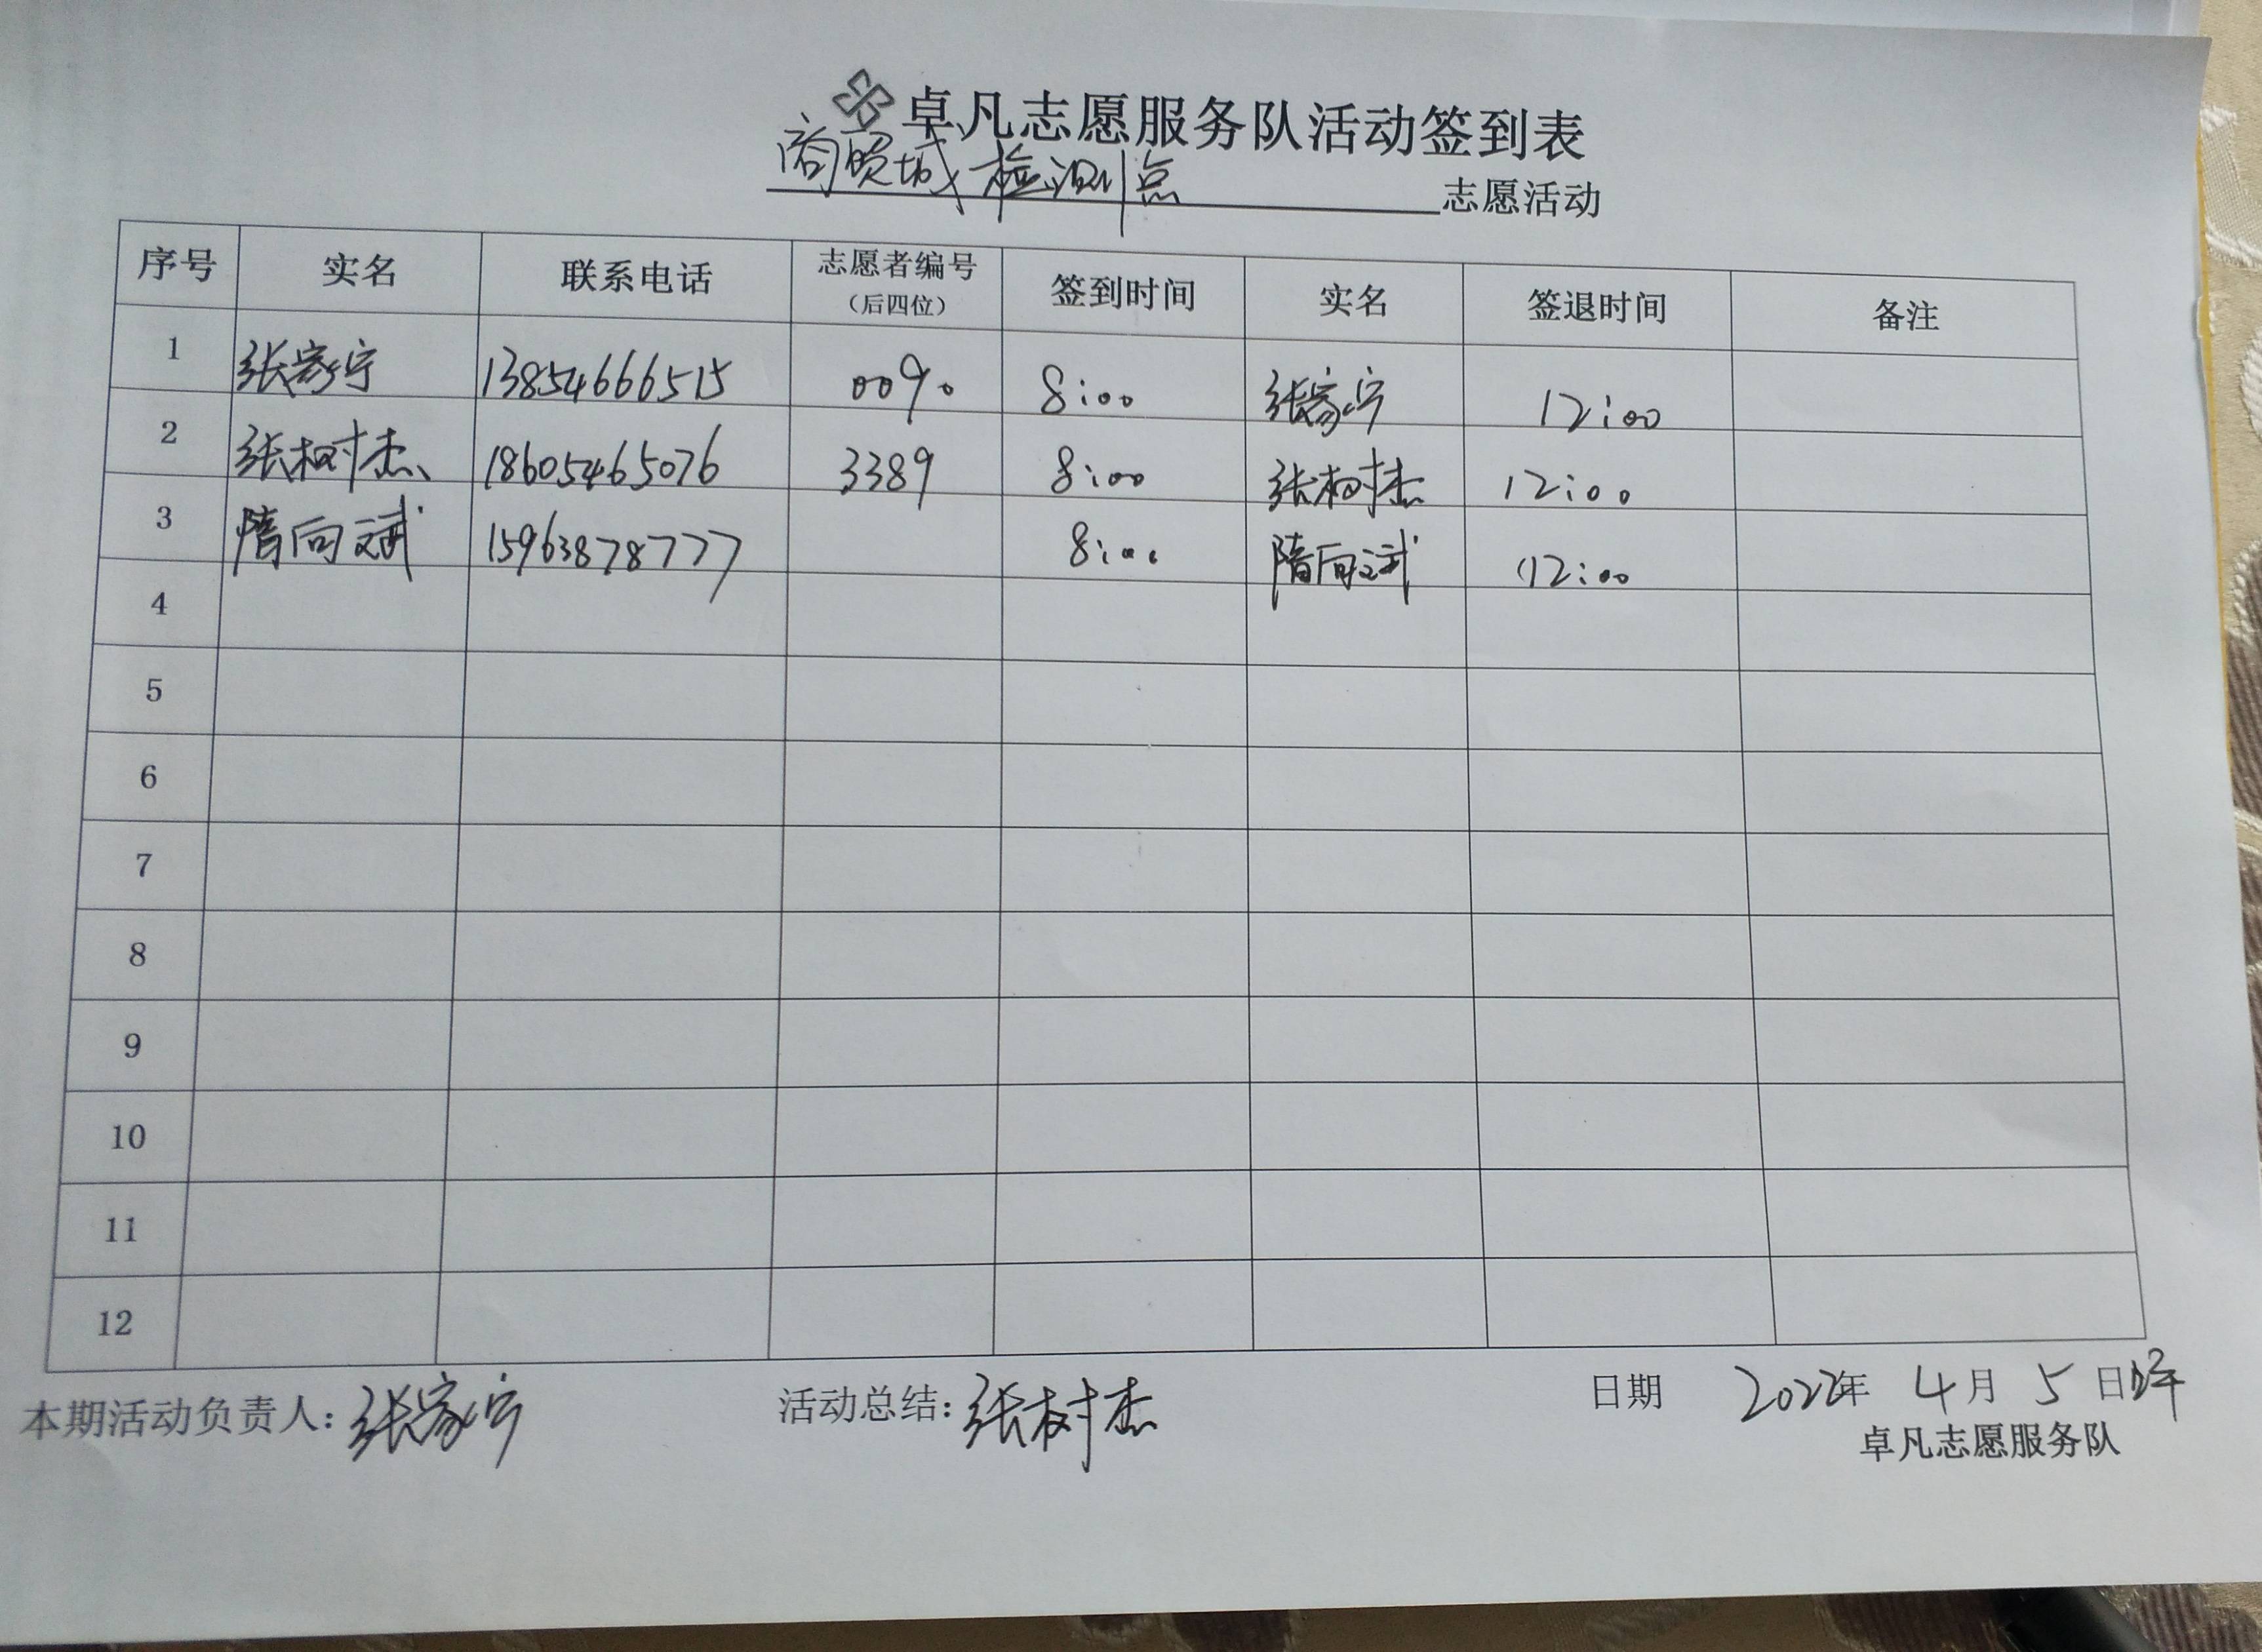 卓凡志愿服务队活动签到表
商贸城检测点志愿活动
序号 实名 联系电话 志愿者编号（后四位） 签到时间 实名 签退时间 备注
1 张家宁 13854666515 0090 8:00 张家宁 12:00
2 张树杰 18605465076 3389 8:00 张树杰 12:00
3 隋向斌 15963878777 8:00 隋向斌 12:00
4
5
6
7
8
9
10
11
12
本期活动负责人：张家宁 活动总结：张树杰 日期 2022年 4月 5日
卓凡志愿服务队